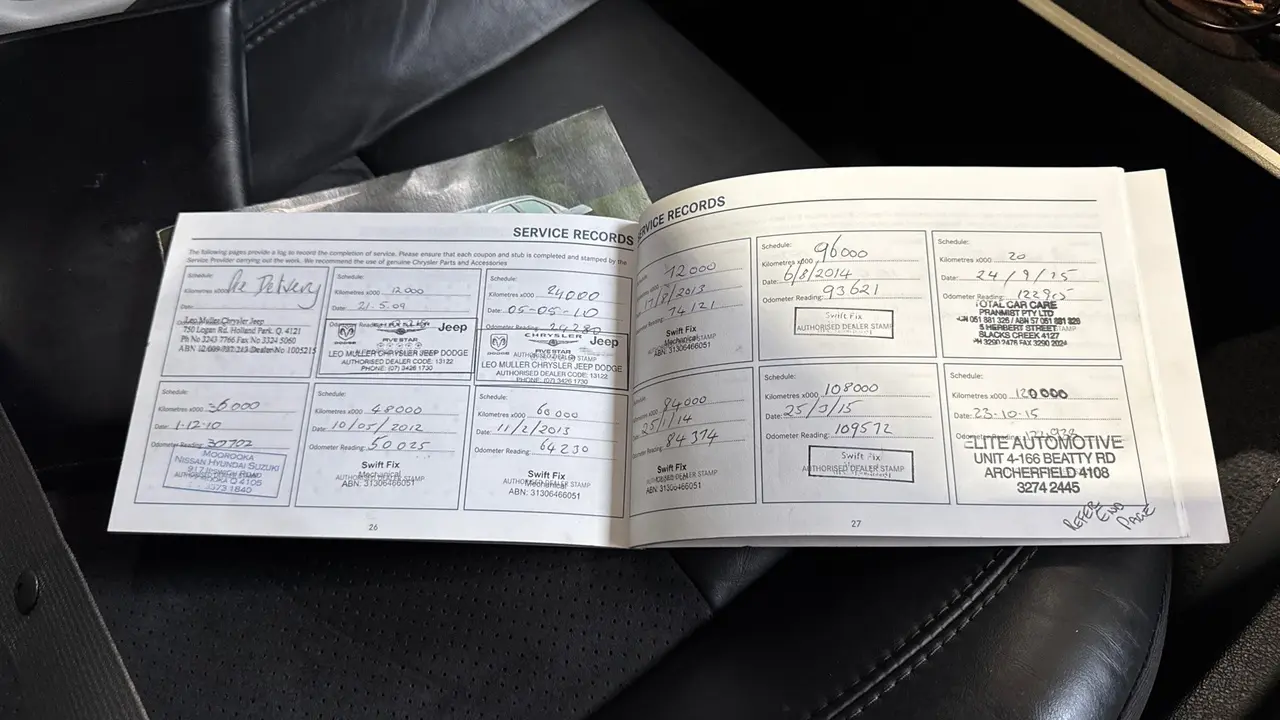 SERVICE RECORDS
The following pages provide a log to record the completion of service. Please ensure that each coupon and stub is completed and stamped by the
Service Provider carrying out the work. We recommend the use of genuine Chrysler Parts and Accessories
Schedule: Pre Delivery
Kilometres x000
Date:
Leo Muller Chrysler Jeep
750 Logan Rd. Holland Park. Q. 4121
Ph No 3243 7766 Fax No 3324 5060
ABN 12 009 737 213 Dealer No 1005215
Schedule:
Kilometres x000 12000
Date: 21.5.09
Odometer Reading:
DODGE
FIVE STAR
Jeep
LEO MULLER CHRYSLER JEEP DODGE
AUTHORISED DEALER CODE: 13122
PHONE: (07) 3426 1730
Schedule:
Kilometres x000 24000
Date: 05-05-10
Odometer Reading: 24280
DODGE
CHRYSLER
FIVE STAR
Jeep
LEO MULLER CHRYSLER JEEP DODGE
AUTHORISED DEALER CODE: 13122
PHONE: (07) 3426 1730
Schedule:
Kilometres x000 36000
Date: 1-12-10
Odometer Reading: 30702
MOOROOKA
NISSAN HYUNDAI SUZUKI
917 IPSWICH ROAD
MOOROOKA Q 4105
3373 1640
Schedule:
Kilometres x000 48000
Date: 10/05/2012
Odometer Reading: 50025
Swift Fix
Mechanical
AUTHORISED DEALER STAMP
ABN: 31306466051
Schedule:
Kilometres x000 60000
Date: 11/2/2013
Odometer Reading: 64230
Swift Fix
Mechanical
AUTHORISED DEALER STAMP
ABN: 31306466051
26
SERVICE RECORDS
72000
17/8/2013
74121
Swift Fix
Mechanical
ABN: 31306466051
84000
25/1/14
84374
Swift Fix
AUTHORISED DEALER STAMP
ABN: 31306466051
Schedule:
Kilometres x000 96000
Date: 6/8/2014
Odometer Reading: 93621
Swift Fix
AUTHORISED DEALER STAMP
Schedule:
Kilometres x000 108000
Date: 25/3/15
Odometer Reading: 109572
Swift Fix
AUTHORISED DEALER STAMP
Schedule:
Kilometres x000 20
Date: 24/9/15
Odometer Reading:
TOTAL CAR CARE
PRANMIST PTY LTD
HERBERT STREET
4127
PH 3290 2478 FAX 3290 2024
Schedule:
Kilometres x000 120000
Date: 23-10-15
Odometer Reading:
ELITE AUTOMOTIVE
UNIT 4-166 BEATTY RD
ARCHERFIELD 4108
3274 2445
REFER
END
PAGE
27